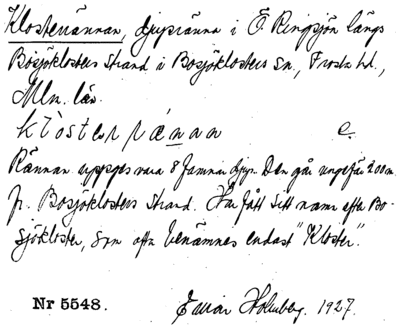 Klosterrännan, djupränna i Ö. Ringsjön längs
Bosjöklosters strand i Bosjöklosters sn, Frosta hd.,
Mlm. län.
klòsterrænan e.
Rännan uppges vara 8 famnar djup. Den går ungefär 200 m
fr. Bosjöklosters strand. Har fått sitt namn efter Bo-
sjökloster, som ofta benämnes endast "Kloster".
Nr 5548. Einar Holmberg. 1927.